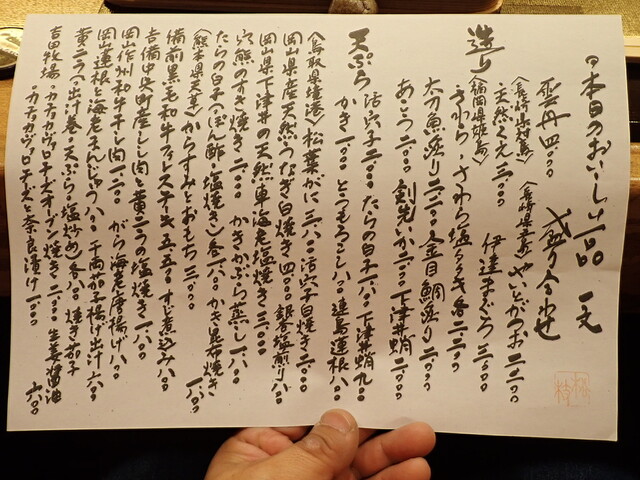 本日のおいしい一品
雲丹四〇〇〇 盛り合わせ
造り
〈長崎県対馬〉〈長崎県五島〉やいとがつお二二〇〇
・天然くえ三〇〇〇 伊達まぐろ三五〇〇
〈福岡県姫島〉
さわら・さわら塩たたき各二二〇〇
太刀魚造り二二〇〇 金目鯛造り二〇〇〇
あこう二〇〇〇 剣先いか二〇〇〇 下津井蛸二〇〇〇
天ぷら 活穴子二〇〇〇 たらの白子一八〇〇 下津井蛸九〇〇
かき一〇〇〇 とうもろこし八〇〇 連島蓮根八〇〇
〈鳥取県境港〉松葉がに 活穴子白焼き二〇〇〇
岡山県産天然うなぎ白焼き四〇〇〇 銀杏塩煎り八〇〇
岡山県下津井の天然車海老塩焼き三〇〇〇
熊のすき焼き二〇〇〇 かきかぶら蒸し一八〇〇
たらの白子〈ぽん酢・塩焼き〉各一八〇〇 かき昆布焼き一八〇〇
〈熊本県天草〉からすみとおもち三〇〇〇
備前黒毛和牛フィレステーキ五五〇〇 すじ煮込み八〇〇
吉備中央町産しし肉と黄ニラの塩焼き一八〇〇
岡山作州和牛干し肉一二〇〇 がら海老唐揚げ八〇〇
岡山蓮根と海老まんじゅう八〇〇 千両茄子揚げ出汁六〇〇
黄ニラ〈出汁巻・天ぷら・塩炒め〉各八〇〇 焼き茄子
吉田牧場・カチョカヴァロチーズオーブン焼き二〇〇〇 生姜醤油
・カチョカヴァロチーズと奈良漬け一〇〇〇 六〇〇